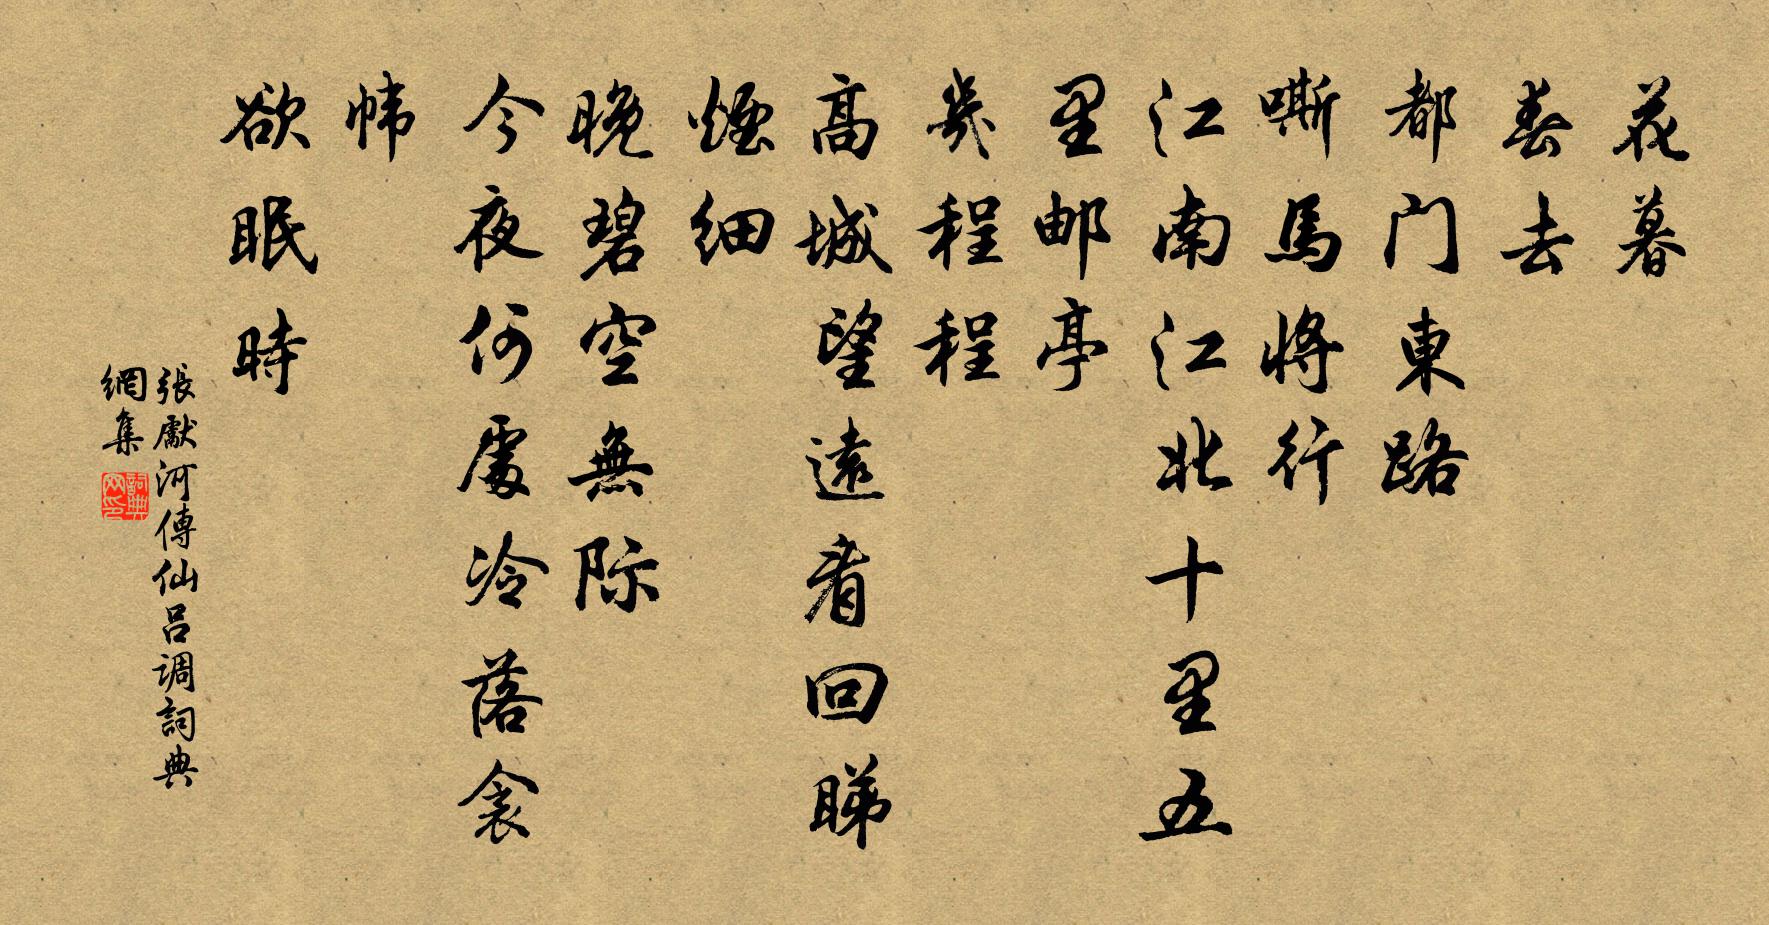 花暮
春去
都门東路
嘶馬將行
江南江北十里五
里邮亭
幾程程
高城望遠看回睇
煙細
晚碧空無际
今夜何處冷落衾
帏
欲眠時
張獻河傳仙呂调詞典
網集
詞典
网印